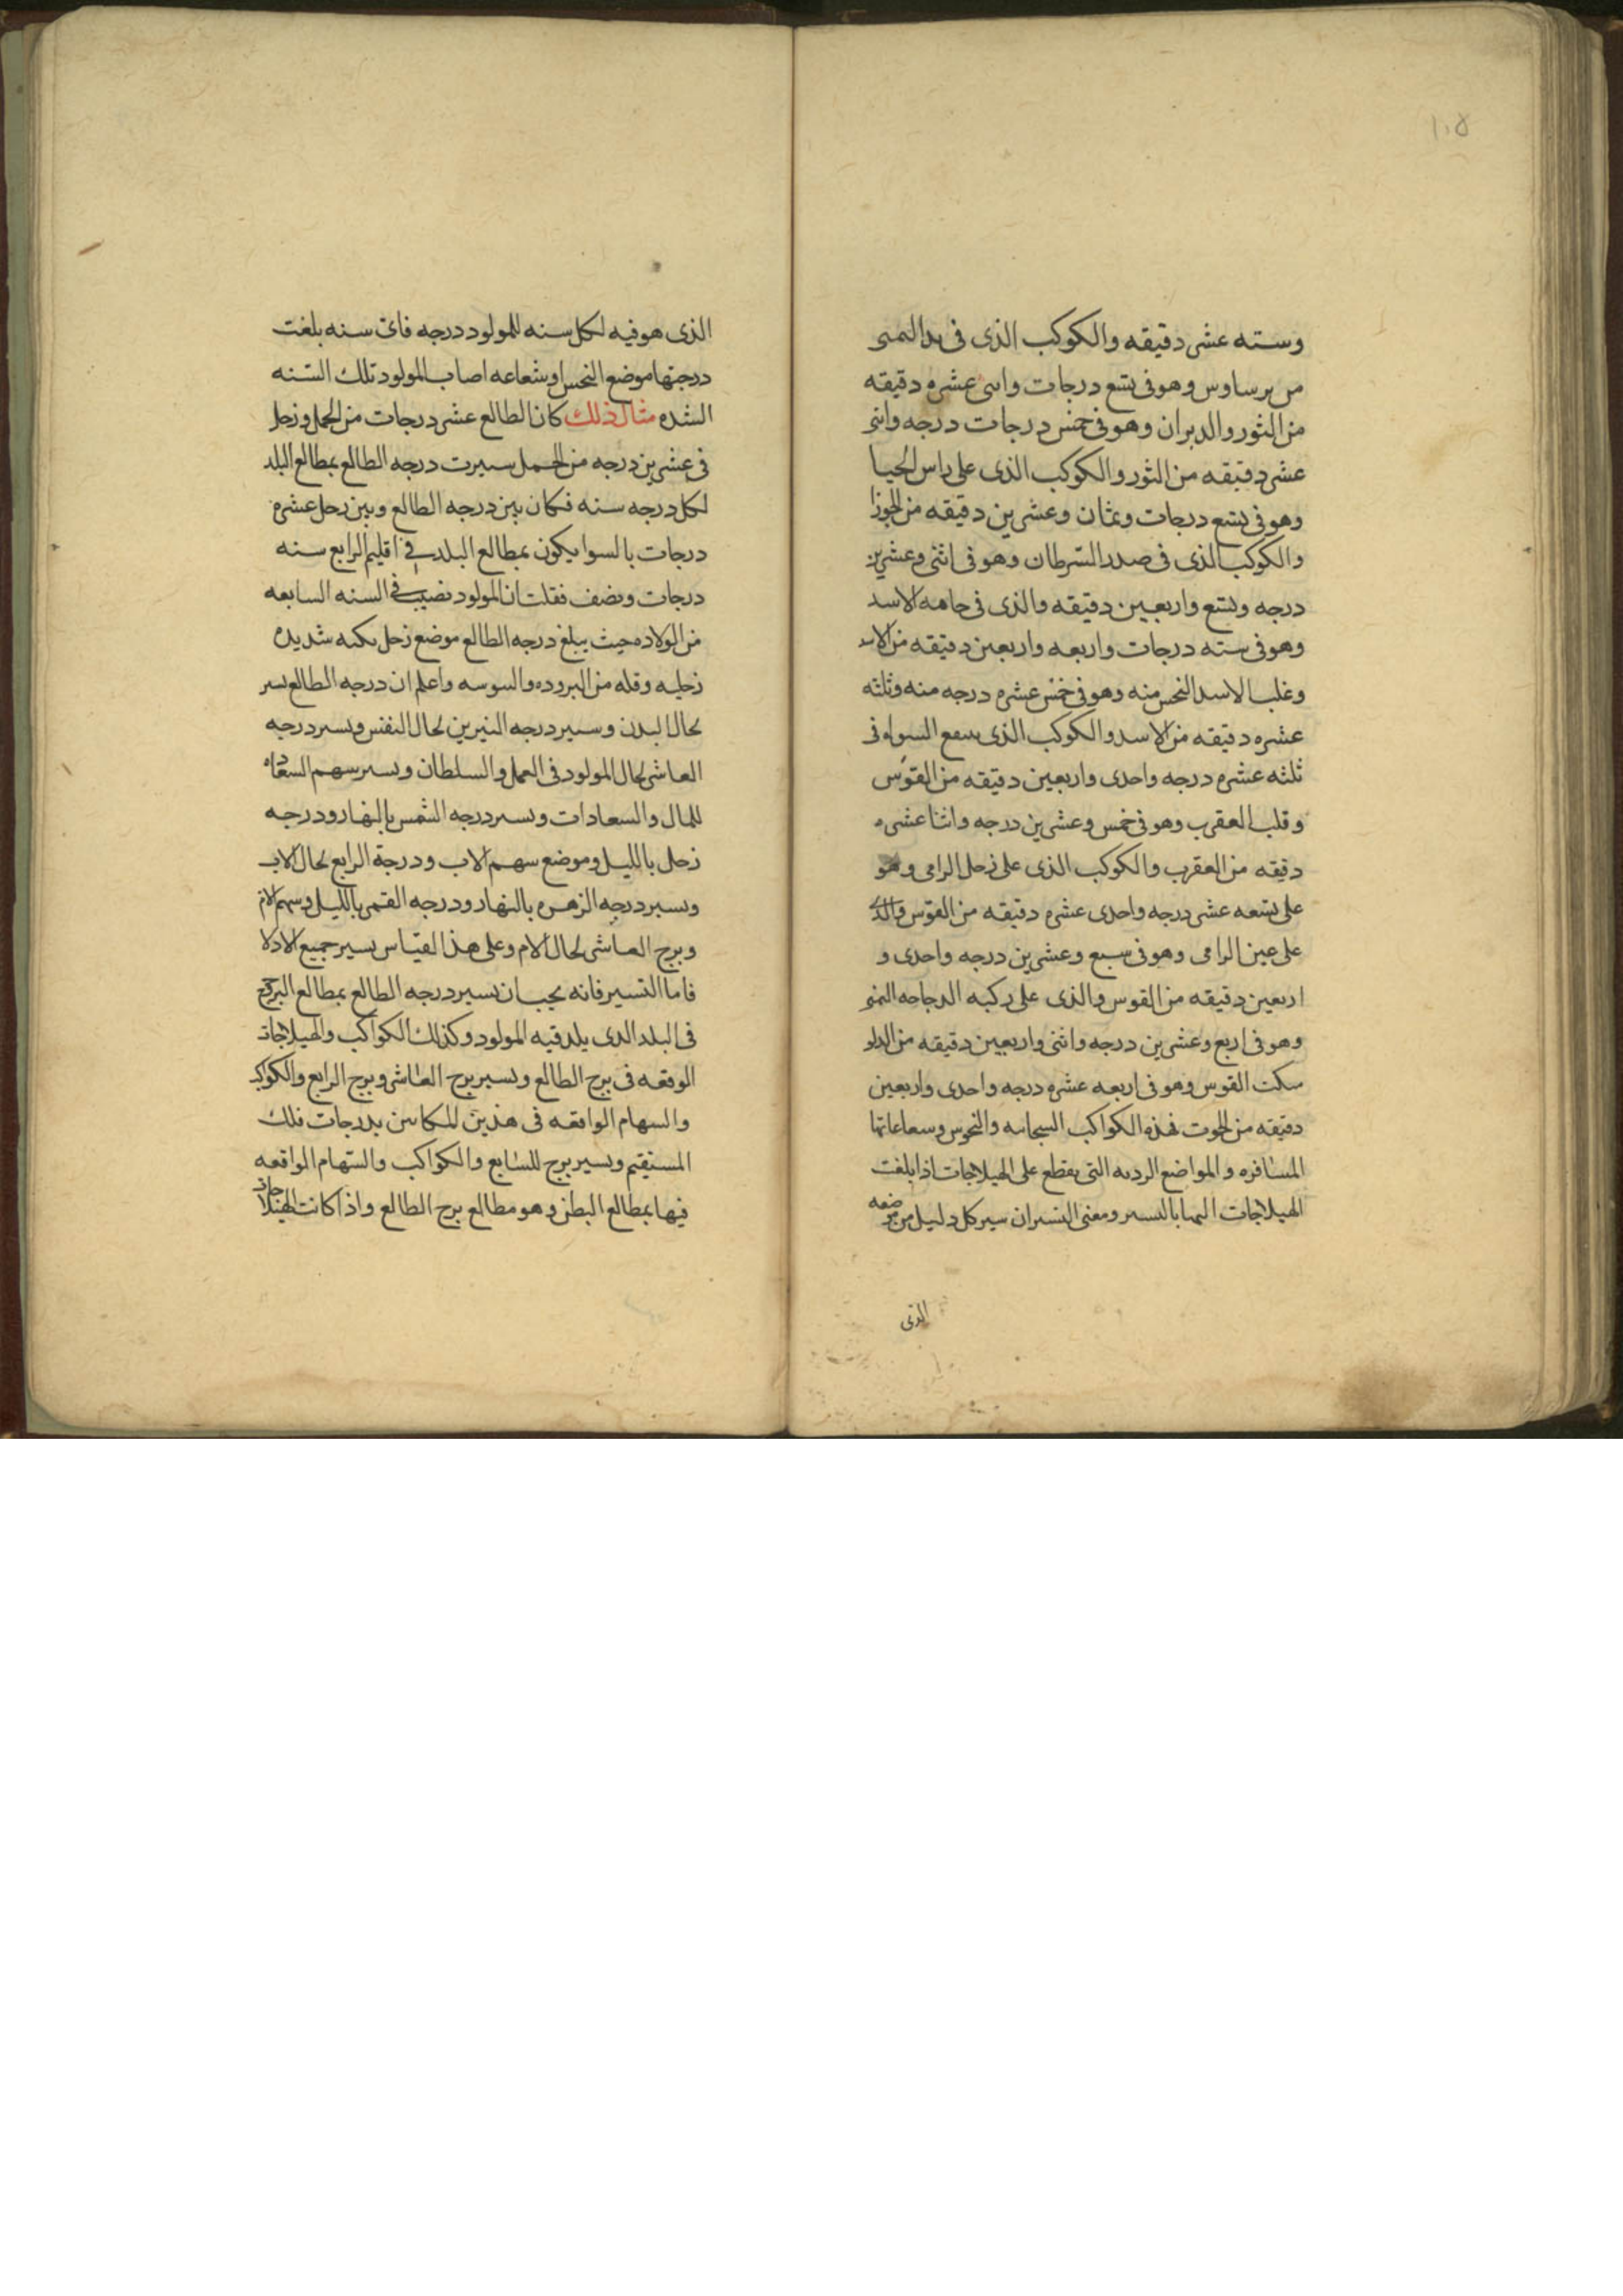 ١٠٥
وسته عشر دقيقه والكوكب الذى فى يد اليمنى
من برساوس وهو فى تسع درجات واثنى عشره دقيقه
من الثور والدبران وهو فى خمس درجات درجه واثنى
عشر دقيقه من الثور والكوكب الذى على راس الحيا
وهو فى تسع درجات وثمان وعشرين دقيقه من الجوزا
والكوكب الذى فى صدر السرطان وهو فى اثنى وعشرين
درجه وتسع واربعين دقيقه والذى فى جاهه الاسد
وهو فى سته درجات واربعه واربعين دقيقه من الاسد
وغلب الاسد النحس منه وهو فى خمس عشره درجه منه وثلثه
عشره دقيقه من الاسد والكوكب الذى السواه فى
ثلثه عشره درجه واحدى واربعين دقيقه من القوس
وقلب العقرب وهو فى خمس وعشرين درجه واثنا عشره
دقيقه من العقرب والكوكب الذى على زحل الرامى وهو
على تسعه عشر درجه واحدى عشره دقيقه من القوس والذى
على عين الرامى وهو فى سبع وعشرين درجه واحدى و
اربعين دقيقه من القوس والذى على ركبه الدجاجه اليمنى
وهو فى اربع وعشرين درجه واثنى واربعين دقيقه من الدلو
سكت القوس وهو فى اربعه عشره درجه واحدى واربعين
دقيقه من الحوت فهذه الكواكب السحابيه والنحوس وسعاعاتها
المسافره والمواضع الرديه التى يقطع على الهيلاجات اذا بلغت
الهيلاجات اليها بالتسير ومعنى التسيران سير كل دليل من موضعه
الذى
الذى هو فيه لكل سنه للمولود درجه فاى سنه بلغت
درجتها موضع النحس او شعاعه اصاب المولود تلك السنه
الشده مثال ذلك كان الطالع عشر درجات من الحمل وزحل
فى عشرين درجه من الحمل سيرت درجه الطالع بمطالع البلد
لكل درجه سنه فكان بين درجه الطالع وبين زحل عشره
درجات بالسوا يكون بمطالع البلد فى اقليم الرابع سته
درجات ونصف فقلت ان المولود تصيبه فى السنه السابعه
من الولاده حيث يبلغ درجه الطالع موضع زحل نكبه شديده
زحليه وقله من البروده والسوسه واعلم ان درجه الطالع تسير
لحال البدن وسير درجه النيرين لحال النفس وتسير درجه
العاشر لحال المولود فى العمل والسلطان وتسير سهم السعاده
للمال والسعادات وتسير درجه الشمس بالنهار ودرجه
زحل بالليل وموضع سهم الاب ودرجة الرابع لحال الاب
وتسير درجه الزهره بالنهار ودرجه القمر بالليل وسهم الام
وبرج العاشر لحال الام وعلى هذا القياس تسير جميع الادلا
فاما التسير فانه يجب ان تسير درجه الطالع بمطالع البروج
فى البلد الدى يلد فيه المولود وكذلك الكواكب والهيلاجات
الوقعه فى برج الطالع وتسير برج العاشر وبرج الرابع والكواكب
والسهام الواقعه فى هذين المكانين بدرجات فلك
المستقيم وتسير برج السابع والكواكب والسهام الواقعه
فيها بمطالع البطن وهو مطالع برج الطالع واذا كانت الهيلاجات